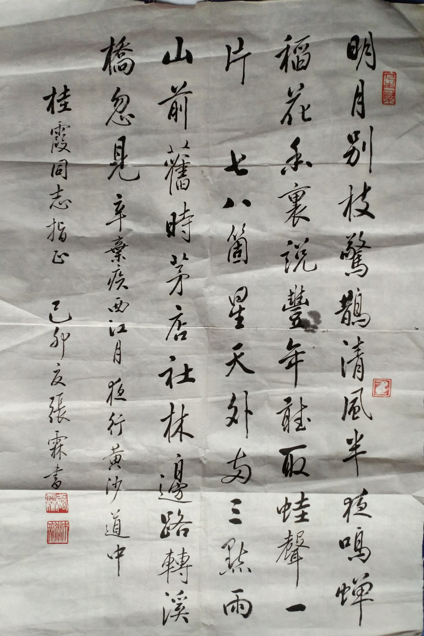 明月别枝驚鵲清風半夜鳴蟬
稻花香裏説豐年聽取蛙聲一
片 七八箇星天外兩三點雨
山前舊時茅店社林邊路轉溪
橋忽見 辛棄疾西江月夜行黄沙道中
桂霞同志指正 己卯夏張霖書